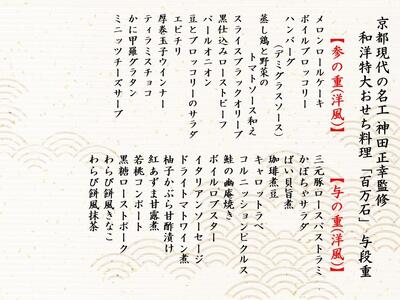 京都現代の名工 神田正幸監修
和洋特大おせち料理 「百万石」 与段重
【参の重(洋風)】
メロンロールケーキ
ボイルブロッコリー
ハンバーグ
(デミグラスソース)
蒸し鶏と野菜の
トマトソース和え
スライスブラックオリーブ
黒仕込みローストビーフ
パールオニオン
豆とブロッコリーのサラダ
エビチリ
厚巻玉子ウインナー
ティラミスチョコ
かに甲羅グラタン
ミニッツチーズサーブ
【与の重(洋風)】
三元豚ロースパストラミ
かぼちゃサラダ
ばい貝旨煮
珈琲煮豆
キャロットラペ
コルニッションピクルス
鮭の幽庵焼き
ボイルロブスター
イタリアンソーセージ
ドライトマトワイン煮
柚子かぶら甘酢漬け
紅あずま甘露煮
若桃コンポート
黒糖ローストポーク
わらび餅風きなこ
わらび餅風抹茶